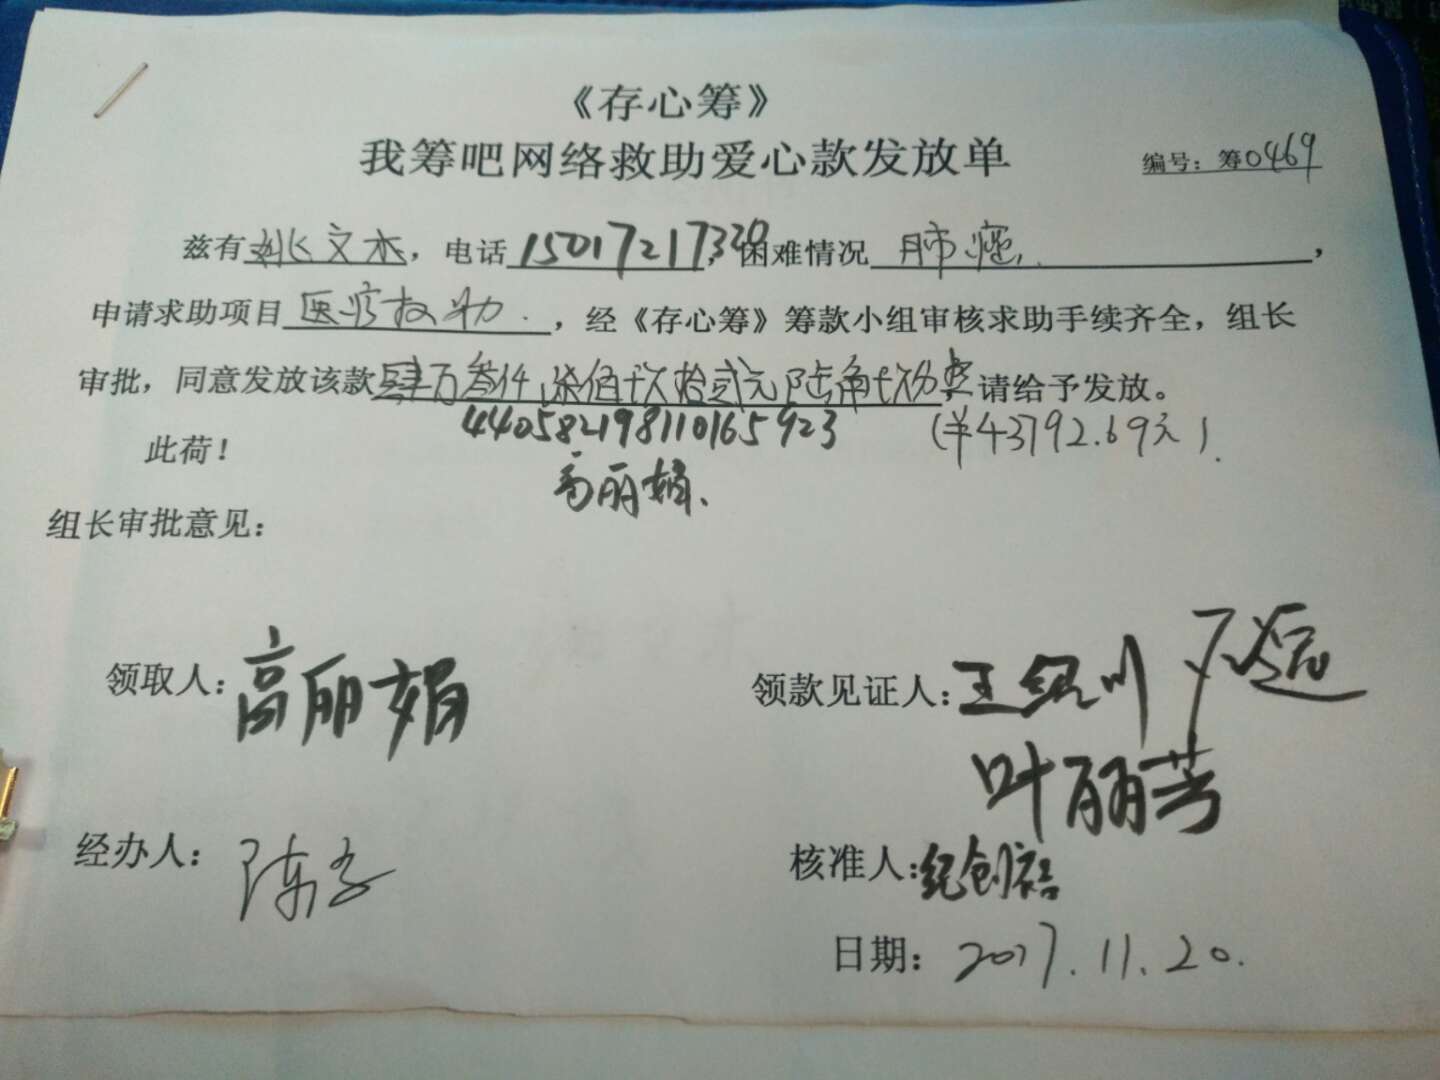 《存心筹》
我筹吧网络救助爱心款发放单
编号：筹0469
兹有姚文杰，电话15017217320，困难情况肺癌，
申请求助项目医疗救助，经《存心筹》筹款小组审核求助手续齐全，组长
审批，同意发放该款肆万叁仟柒佰玖拾贰元陆角玖分整请给予发放。
440582198110165923 (￥43792.69元).
此荷！
高丽娟
组长审批意见：
领取人：高丽娟
领款见证人：王
叶丽芳
经办人：陈
核准人：纪创
日期：2017.11.20.